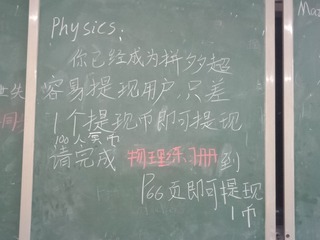 Physics:
你已经成为拼夕夕超
容易提现用户,只差
1个提现币即可提现
100人民币
请完成 物理练习册到
P66页即可提现
1币
失
同